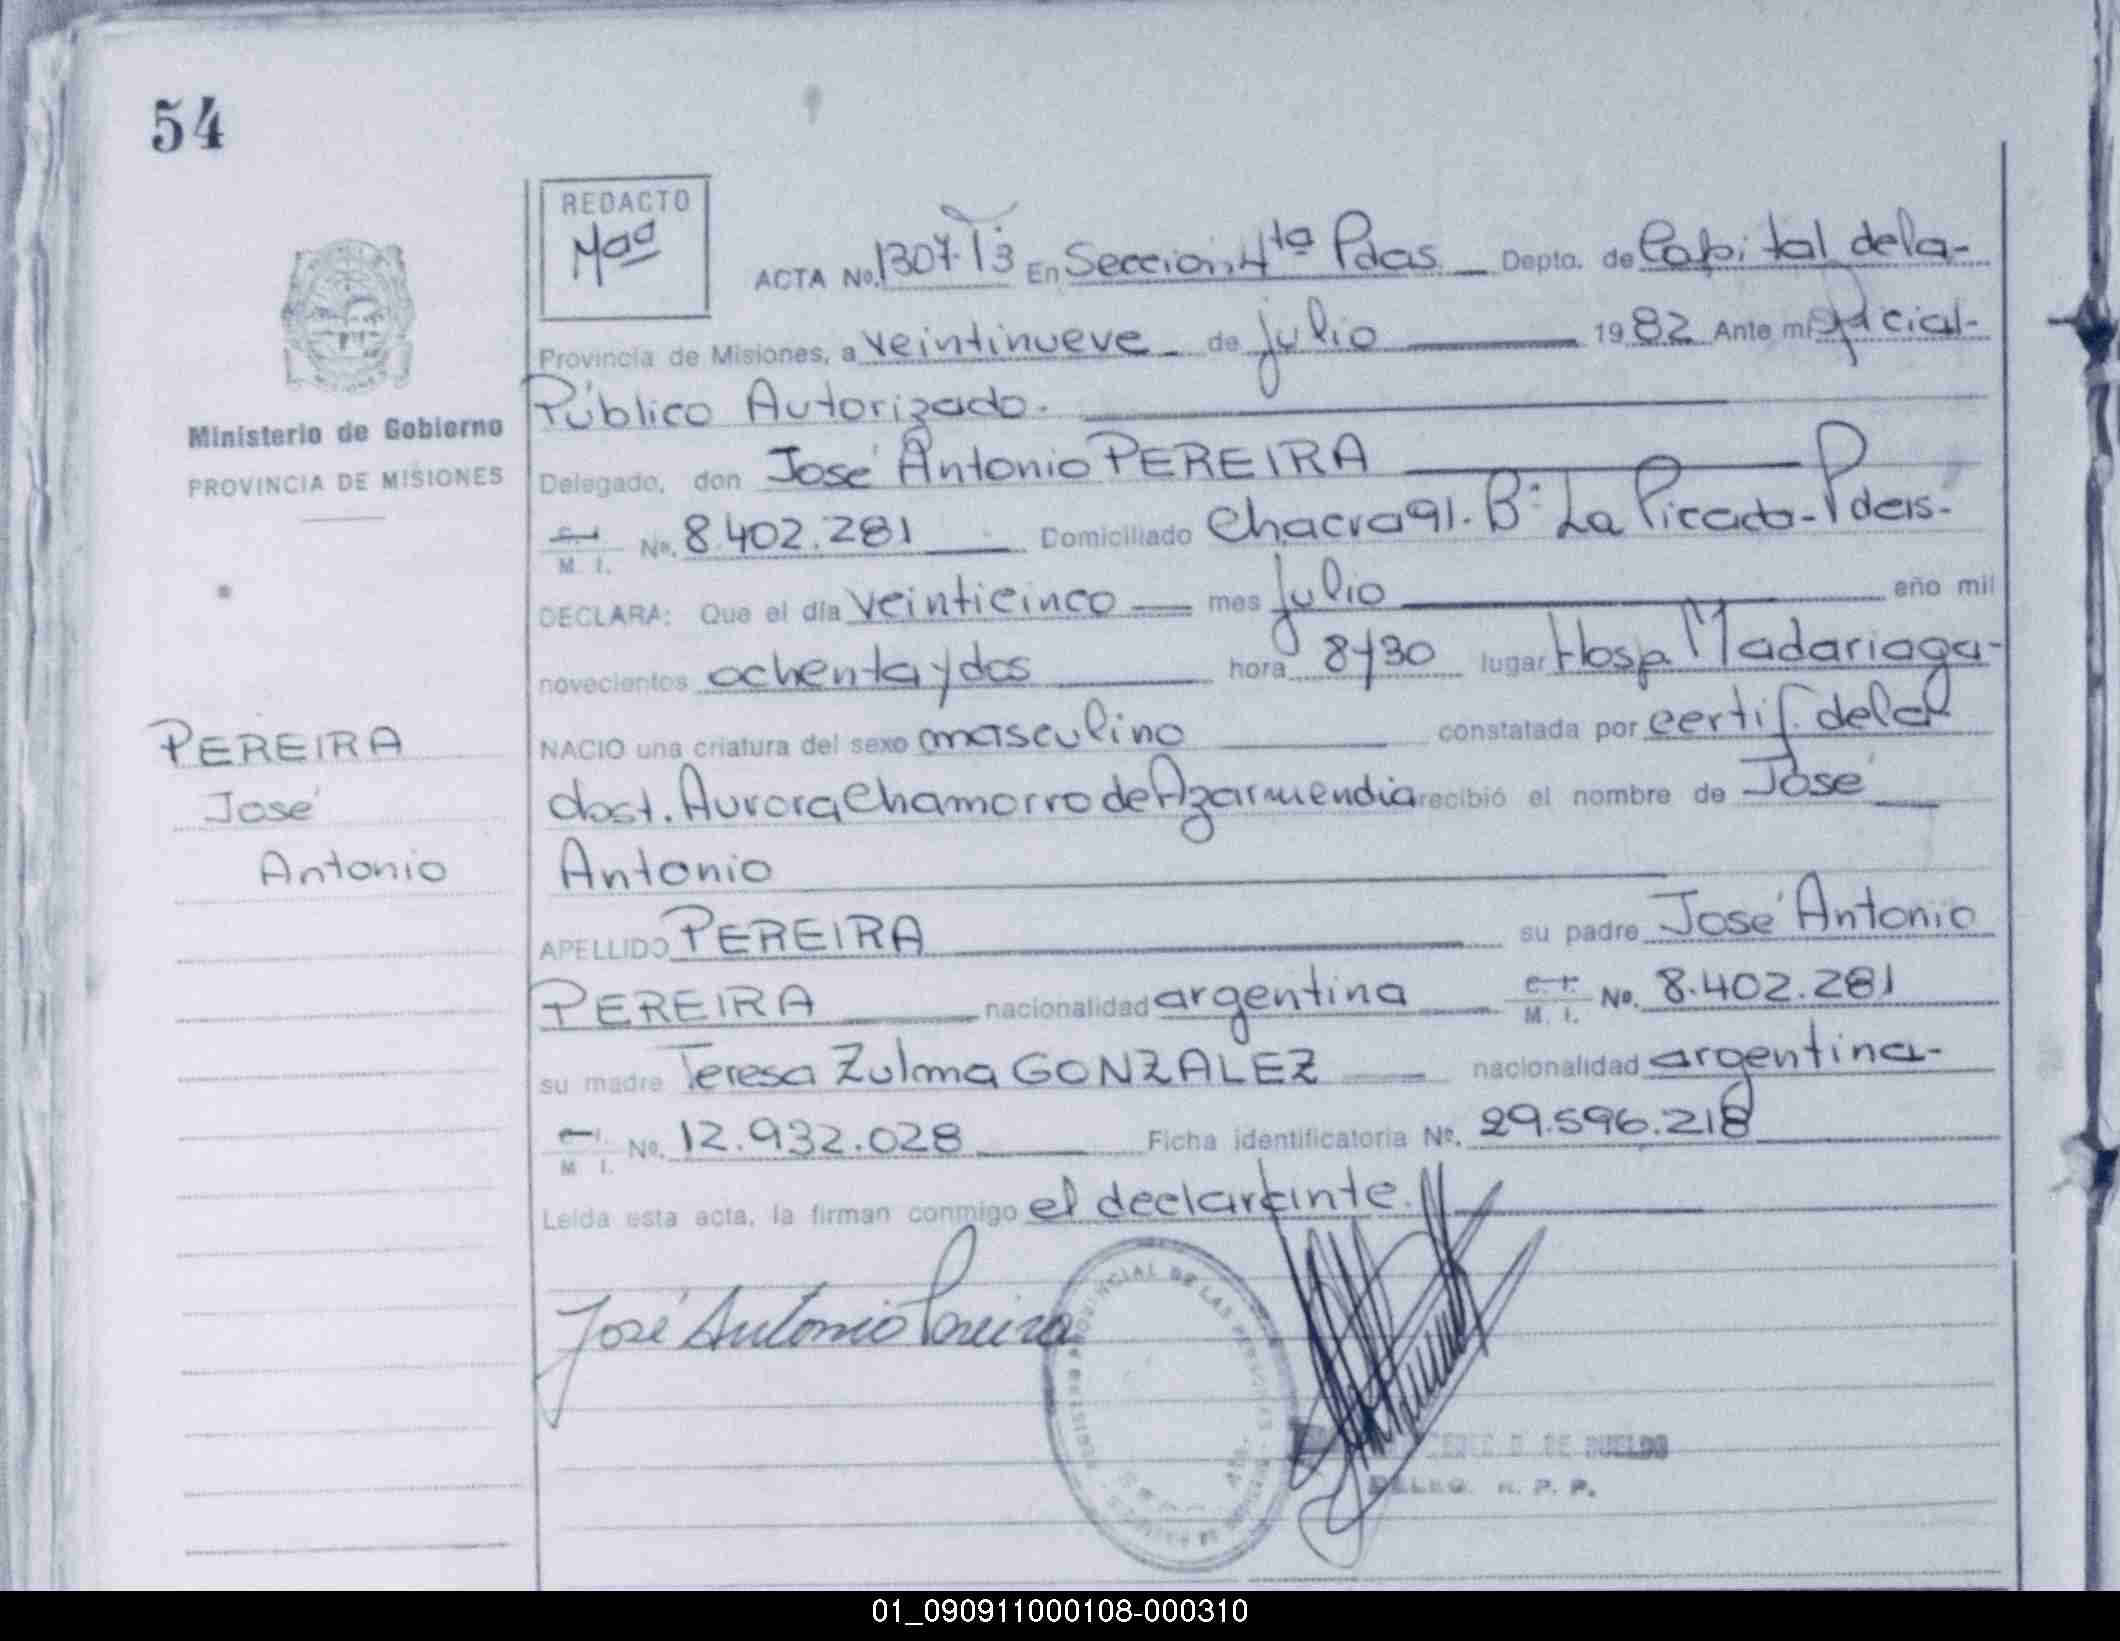 54
REDACTO
Maa
ACTA No. 1307-T3 En Sección 4ta Pdas Depto. de Capital de la-
Provincia de Misiones, a veintinueve - de julio 1982 Ante mi Oficial-
Público Autorizado.
Ministerio de Gobierno
PROVINCIA DE MISIONES
Delegado, don José Antonio PEREIRA
C. I.
M. I. No. 8.402.281 Domiciliado Chacra 91. Bº La Picada - Pdas-
DECLARA: Que el día veinticinco mes julio año mil
novecientos ochenta y dos hora 8y30 lugar Hosp Madariaga-
NACIO una criatura del sexo masculino constatada por certif. de la
obst. Aurora Chamorro de Azarmendia recibió el nombre de José
Antonio
PEREIRA
José
Antonio
APELLIDO PEREIRA su padre José Antonio
PEREIRA nacionalidad argentina C. I.
M. I. No. 8.402.281
su madre Teresa Zulma GONZALEZ nacionalidad argentina-
C. I.
M. I. No. 12.932.028 Ficha identificatoria No. 29.596.218
Leída esta acta, la firman conmigo el declarante.
José Antonio Pereira
PROVINCIAL DE LAS PERSONAS
DE SUELDO
DELEG. R. P. P.
01_090911000108-000310